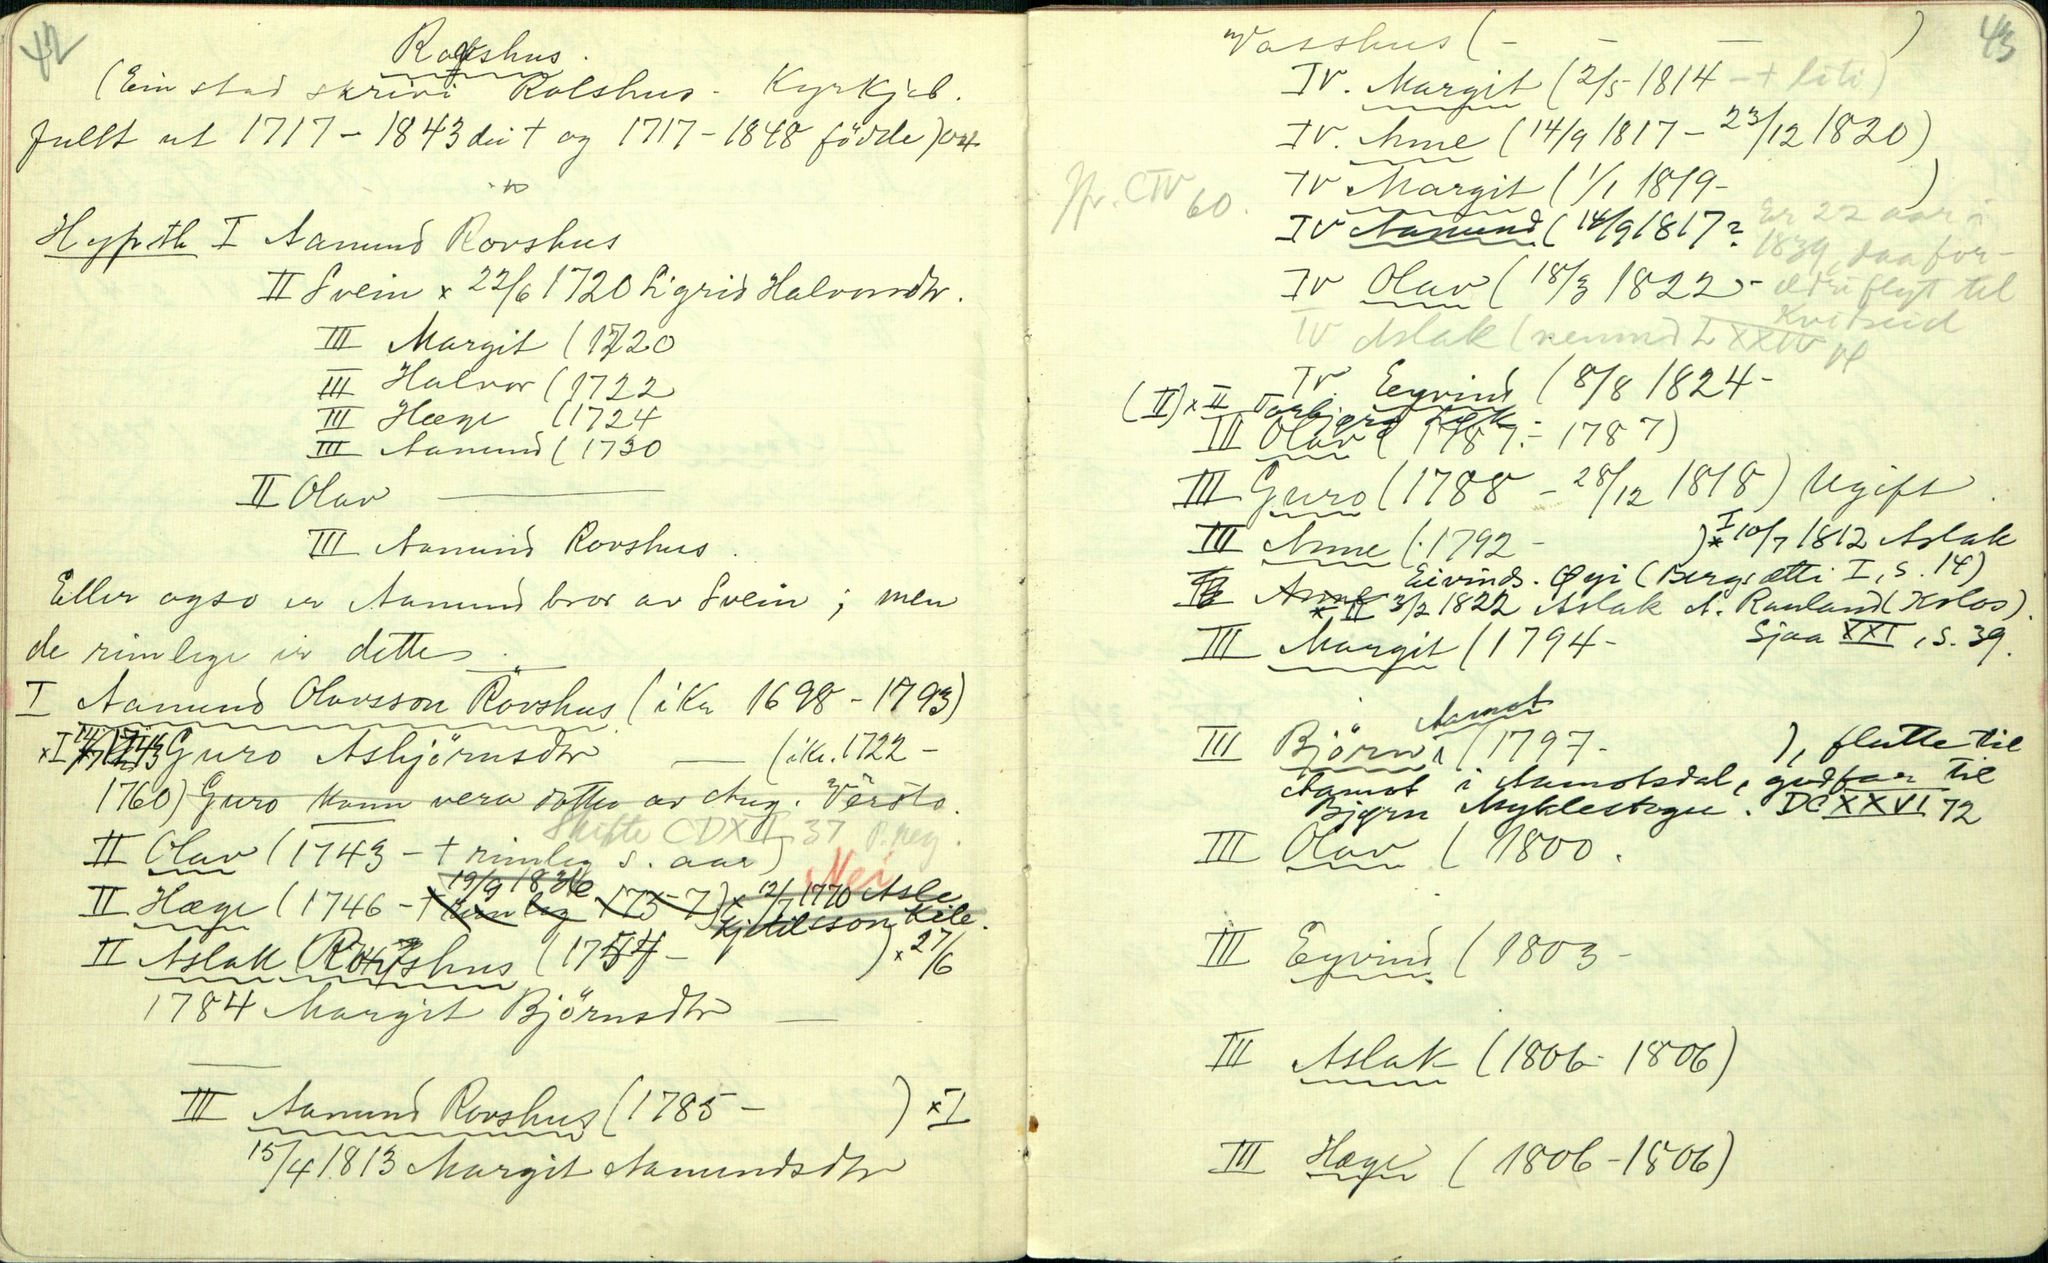 42
Rofshus.
(Ein stad skrivi Rolshus. Kyrkjeb.
fullt ut 1717 - 1843 dei + og 1717 - 1848 födde)
Hypoth I Aamund Rovshus
II Svein x 22/6 1720 Sigrid Halvorsdtr.
III Margit (1720
III Halvor (1722
III Hæge (1724
III Aamund (1730
II Olav
III Aamund Rovshus.
Eller ogso er Aamund bror av Svein; men
de rimlege er dette.
I Aamund Olavsson Rovshus (i Kr 1698 - 1793)
xI Guro Asbjörnsdtr — (ikr. 1722 -
1760) Guro kann vera dotter av Aug. Versto.
Skifte CDXI, 37
II Olav (1743 - + rimleg s. aar)
Nei
19/9 1836
II Hæge (1746 - + rimleg 1757) x 12/7 1770 Asle
Kjetilsson Kile.
II Aslak Rovshus (1754 - ) x 27/6
1784 Margit Björnsdtr —
III Aamund Rovshus (1785 - ) xI
15/4 1813 Margit Aamundsdtr
43
Vasshus ( - - - )
IV. Margit (2/5 1814 - + liti)
IV. Anne (14/9 1817 - 23/12 1820)
Jfr. CIV 60.
IV Margit (1/1 1819 - )
IV Aamund (14/9 1817? Er 22 aar i
1839, daa for-
IV Olav (18/3 1822 - eldri flyt til
Kvitseid
IV Aslak (nemnd LXXIV
IV. Eyvind (8/8 1824 -
(II) x II Torbjørg
III Olav (1787 - 1787)
III Guro (1788 - 28/12 1818) Ugift.
III Anne (1792 - ) x I 10/7 1812 Aslak
Eivinds. Øyi (Bergsætti I, s. 14)
III Anne x II 3/2 1822 Aslak A. Rauland (Kolos).
III Margit (1794 - Sjaa XXI, s. 39.
Aamot
III Björn (1797 - ), flutte til
Aamot i Aamotsdal, gudfar til
Bjørn Myklestogu. DCXXVI 72
III Olav (1800.
III Eyvind (1803 -
III Aslak (1806 - 1806)
III Hæge (1806 - 1806)